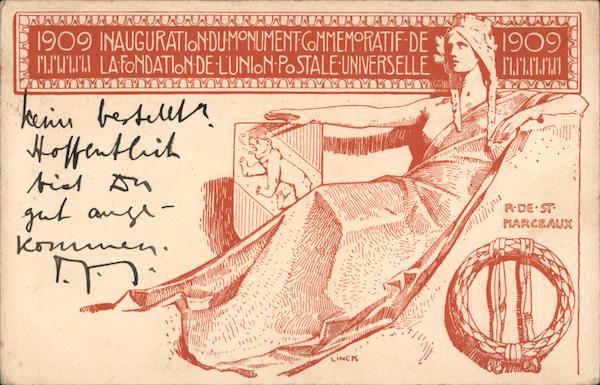 1909 INAUGURATION·DU·MONUMENT·COMMEMORATIF·DE 1909
LA·FONDATION·DE·L'UNION·POSTALE·UNIVERSELLE
keine bestellt?
Hoffentlich
bist Du
gut ange-
kommen.
R·DE·ST·
MARCEAUX
LINCK